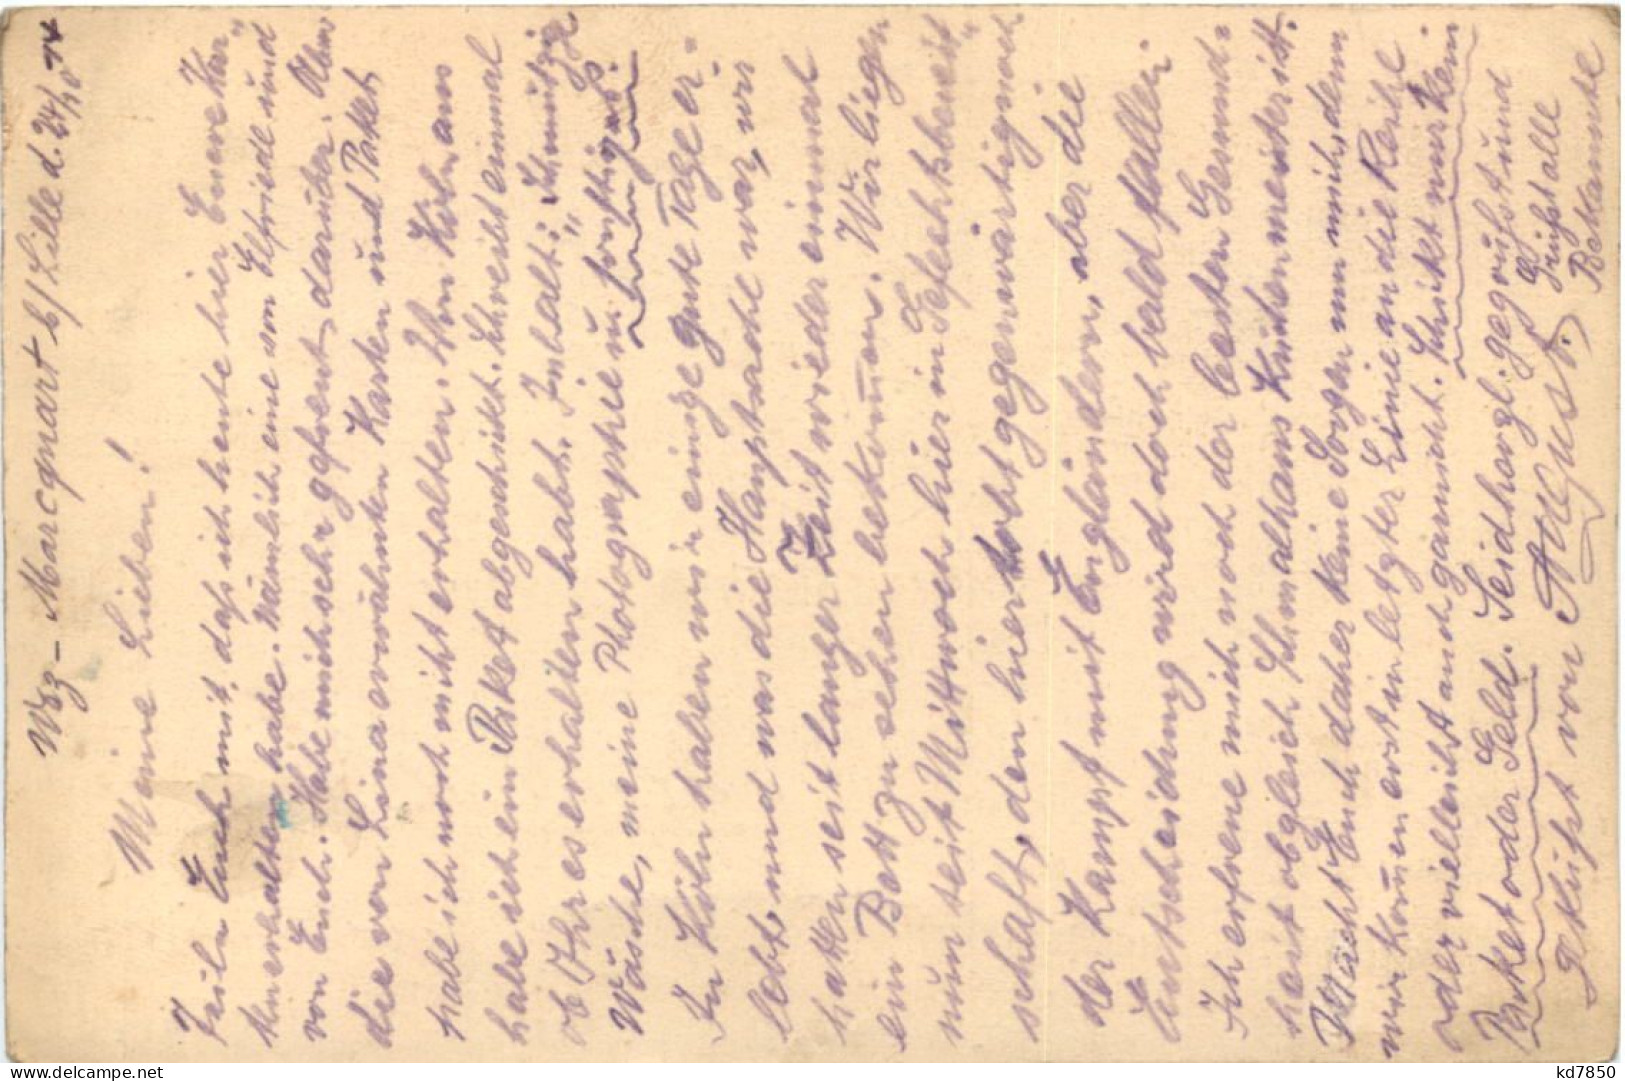 Wez-Marcquart b/ Lille d. 24/10 14
Meine Lieben!
Teile Euch mit, daß ich heute hier Euere Kar-
ten erhalten habe. Nämlich eine von Elfriede und
von Euch. Habe mich sehr gefreut, darüber. Aber
die von Lina erwähnten Karten und Paket,
habe ich noch nicht erhalten. Von Köln aus
habe ich ein Paket abgeschickt. Schreibt einmal
ob Ihr es erhalten habt. Inhalt: „Schmutzige
Wäsche, meine Photographie u. sonstiges.
In Köln haben wir einige gute Tage er-
lebt, und was die Hauptsache war, wir
hatten seit langer Zeit wieder einmal
ein Bett zu sehen bekommen. Wir liegen
nun seit Mittwoch hier in „Gefechtsbereit"
schaft, den hier tobt gegenwärtig noch
der Kampf mit Engländern, aber die
Entscheidung wird doch bald fallen.
Ich erfreue mich noch der besten Gesund-
heit obgleich Schmalhans Küchenmeister ist.
Macht Euch daher keine Sorgen um mich, denn
wir kommen erst in letzter Linie an die Reihe
oder vielleicht auch garnicht. Schickt mir kein
Paket oder Geld. Seid herzl. gegrüßt und
geküßt von August.
Grüßt alle
Bekannte
kd7850